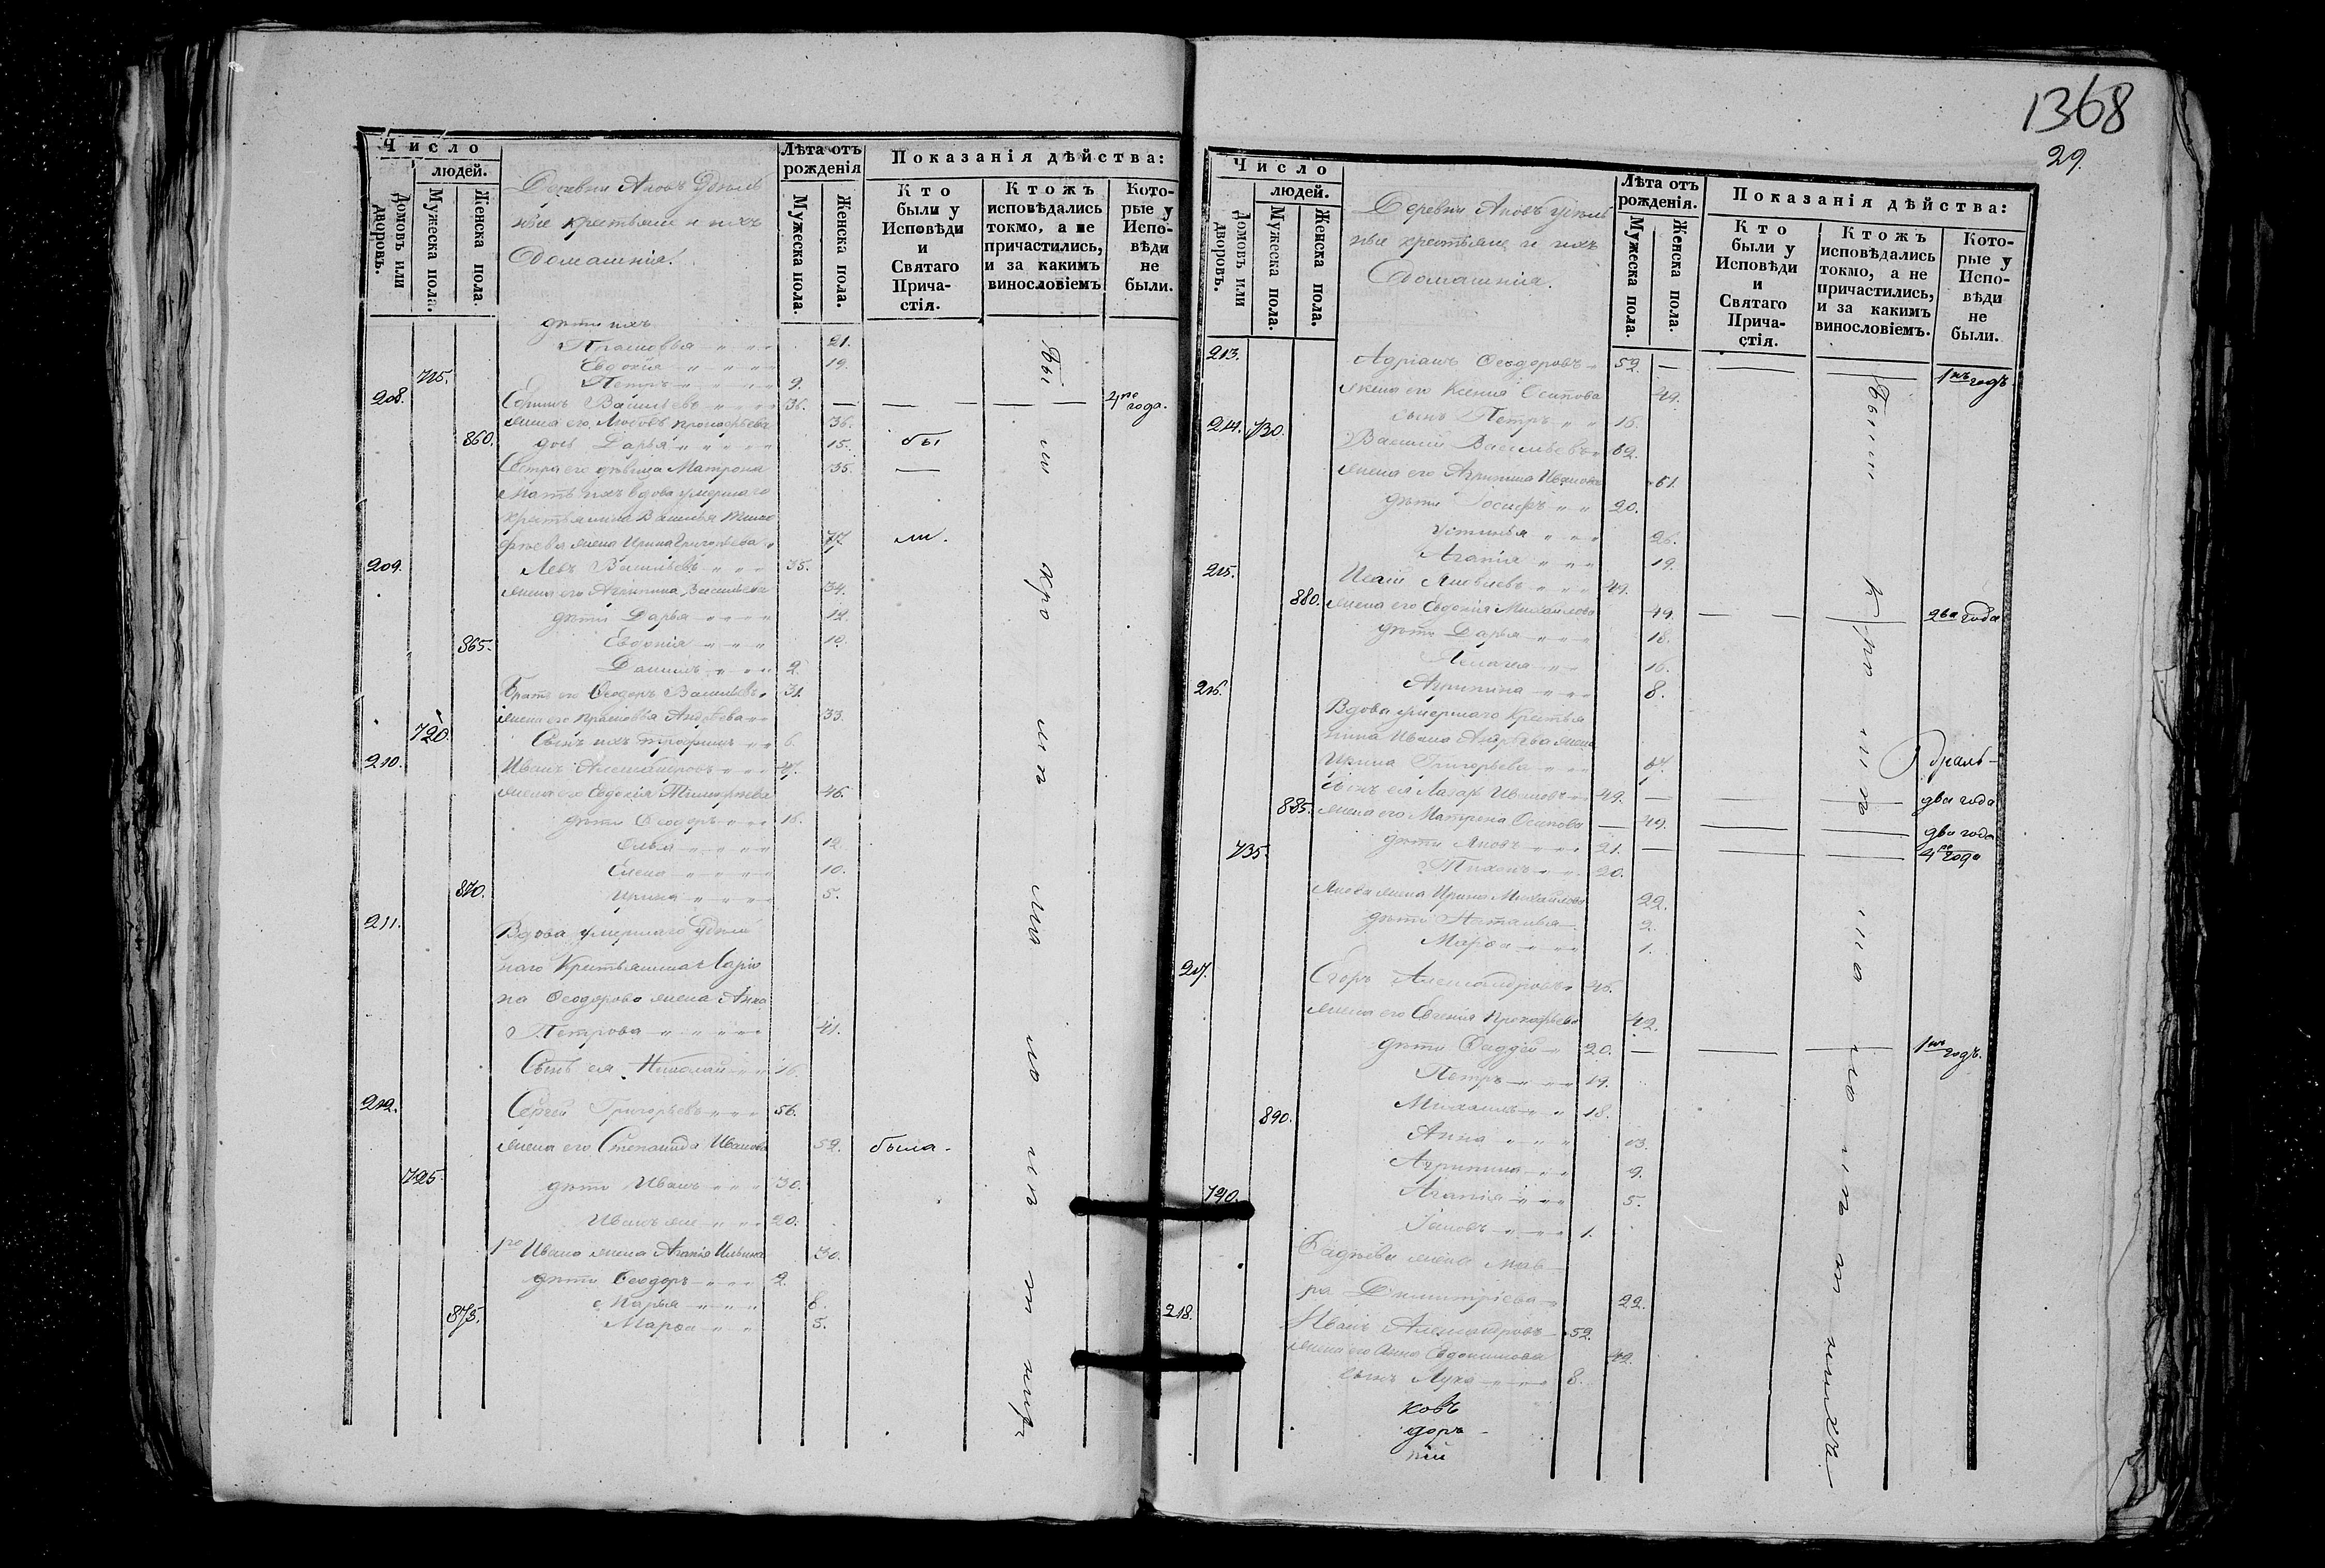 Число
людей.
Домовъ или дворовъ.
Мужеска пола.
Женска пола.
Деревни Аковъ Удѣль
ные крестьяне и ихъ
Домашнія.
Лѣта отъ рожденія
Мужеска пола.
Женска пола.
Показанія дѣйства:
Кто были у Исповѣди и Святаго Прича-стія.
Ктожъ исповѣдались токмо, а не причастились, и за какимъ винословіемъ
Кото-рые у Испо-вѣди не были.
дѣти ихъ
Прасковья 21.
Евдокія 19.
715. Петръ 9.
208. Васильевъ 36. — — — — 4ре года.
жена его Любовь Прокофьева 36.
860. дочь Дарья 15. бы
Сестра его дѣвица Матрона 35. —
мать ихъ вдова умершаго
крестьянина Василья Тимо
фѣева жена Ирина Григорьева 77. ли.
209. Левъ Васильевъ 35.
жена его Агрипина Васильева 34.
дѣти Дарья 12.
865. Евдокія 10.
Даніилъ 2.
Братъ его Ѳеодоръ Васильевъ 31.
жена его Прасковья Андреева 33.
720. Сынъ ихъ Трофимъ 6.
210. Иванъ Александровъ 47.
жена его Евдокія Тимофѣева 46.
дѣти Ѳеодоръ 16.
12.
Елена 10.
870. Ирина 5.
211. Вдова умершаго Удѣль
наго Крестьянина Ларіо
на Ѳеодорова жена Анна
Петрова 41.
Сынъ ея Николай 16.
212. Сергей Григорьевъ 56.
жена его Степанида Иванова 52. была.
725. дѣти Иванъ 30.
Иванъ же 20.
1го Ивана жена Агапія Ильина 30.
дѣти Ѳеодоръ 2.
Марья 8.
875. Марѳа 5.
1368
29.
Число
людей.
Домовъ или дворовъ.
Мужеска пола.
Женска пола.
Деревни Аковъ Удѣль
ные крестьяне и ихъ
Домашнія.
Лѣта отъ рожденія.
Мужеска пола.
Женска пола.
Показанія дѣйства:
Кто были у Исповѣди и Святаго Прича-стія.
Ктожъ исповѣдались токмо, а не причастились, и за какимъ винословіемъ.
Кото-рые у Испо-вѣди не были.
213. Адріанъ Ѳеодоровъ 52. — — — 1нъ годъ
жена его Ксенія Осипова 49.
сынъ Петръ 15.
214. 730. Василій Васильевъ 62.
жена его Агрипина Иванова 61.
дѣти Іосифъ 20.
Устинья 26.
Агапія 19.
215. Исаій Яковлевъ 49.
880. жена его Евдокія Михайлова 49. — — два года
дѣти Дарья 18.
Пелагея 16.
216. Агрипина 8.
Вдова умершаго Крестья
нина Ивана Андреева жена
Ирина Григорьева 67.
сынъ ея Лазарь Ивановъ 49. — — — два года
885. жена его Матрена Осипова — 49. — — два года
735. дѣти Яковъ 21. — — — 4ре года
Тихонъ 20.
жена Ирина Михайлова 22.
дѣти Наталья 2.
Марѳа 1.
217. Егоръ Александровъ 46.
жена его Евгенія Прокофьева 42.
дѣти Фаддей 20. — — — 1нъ годъ.
Петръ 19.
890. Михаилъ 18.
Анна 13.
Агрипина 9.
Агапія 5.
Іаковъ 1.
Фадѣева жена Мав
ра Димитріева 22.
218. Иванъ Александровъ 52.
жена его Анна Евдокимова 42.
сынъ Лука 8.
ковъ
доръ
ній